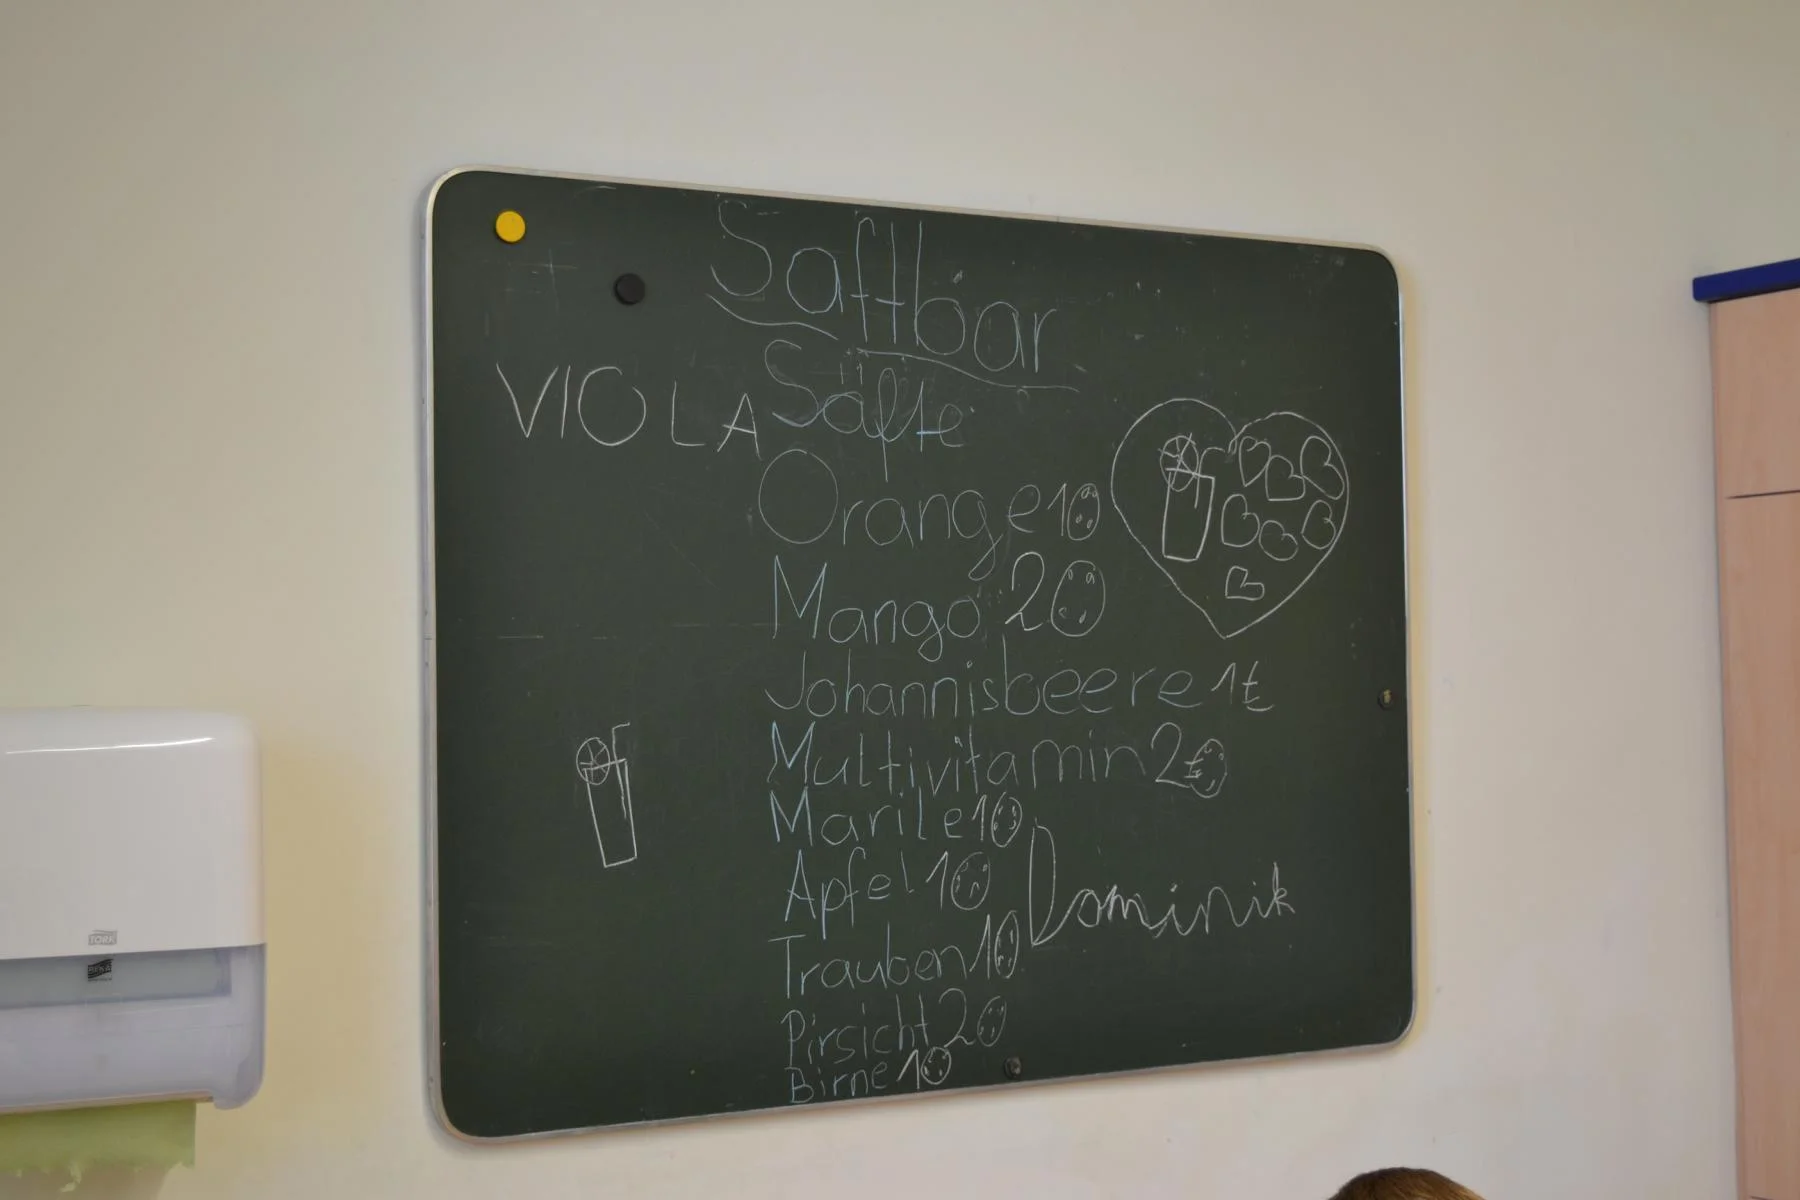 Saftbar
VIOLA
Säfte
Orange 1
Mango 2
Johannisbeere 1€
Multivitamin 2€
Marile 1
Apfel 1
Dominik
Trauben 1
Pirsicht 2
Birne 1
TORK